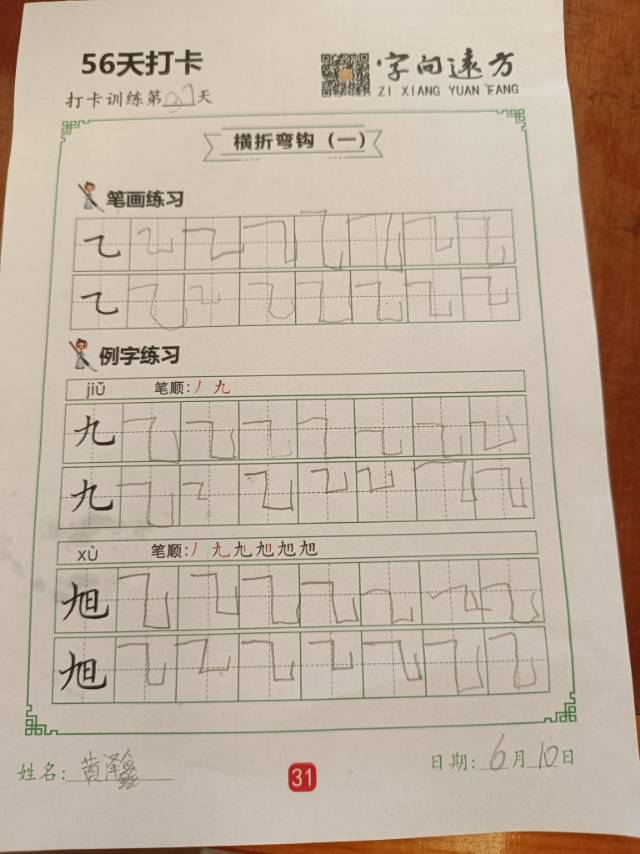 56天打卡
字向遠方
打卡训练第27天
ZI XIANG YUAN FANG
横折弯钩（一）
笔画练习
乙
乙
例字练习
jiǔ 笔顺:丿九
九
九
xù 笔顺:丿九九旭旭旭
旭
旭
姓名:黄泽鑫
31
日期:6月10日